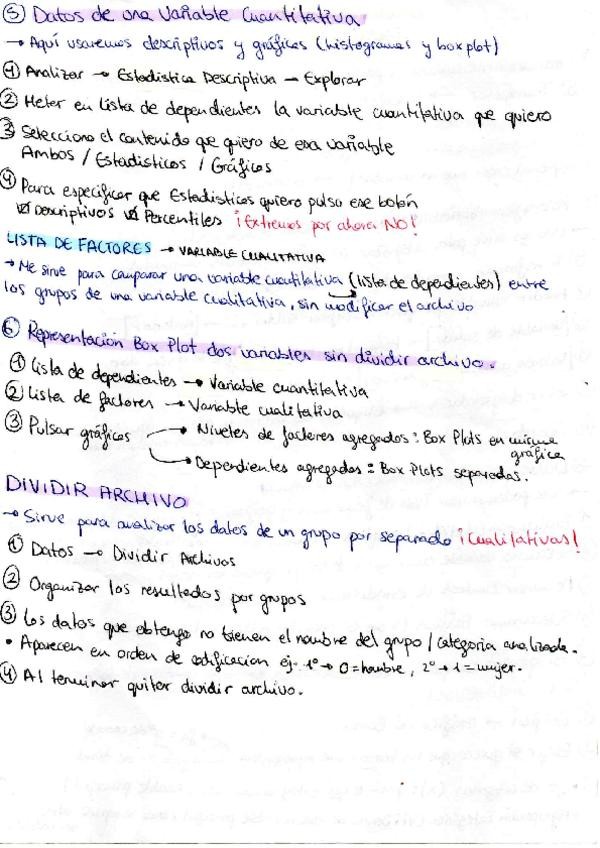 ⑤ Datos de una Variable Cuantitativa
→ Aquí usaremos descriptivos y gráficos (histogramas y boxplot)
① Analizar → Estadística Descriptiva → Explorar
② Meter en lista de dependientes la variable cuantitativa que quiero
③ Selecciono el contenido que quiero de esa variable
Ambos / Estadísticos / Gráficos
④ Para especificar que Estadísticos quiero pulso ese botón
☑ Descriptivos ☑ Percentiles ¡Extremos por ahora NO!
LISTA DE FACTORES → VARIABLE CUALITATIVA
→ Me sirve para comparar una variable cuantitativa (lista de dependientes) entre
los grupos de una variable cualitativa, sin modificar el archivo
⑥ Representación Box Plot dos variables sin dividir archivo.
① Lista de dependientes → Variable cuantitativa
② Lista de factores → Variable cualitativa
③ Pulsar gráficos → Niveles de factores agregados: Box Plots en misma
gráfica
→ Dependientes agregados = Box Plots separados.
DIVIDIR ARCHIVO
→ Sirve para analizar los datos de un grupo por separado ¡Cualitativas!
① Datos → Dividir Archivos
② Organizar los resultados por grupos
③ Los datos que obtengo no tienen el nombre del grupo / categoría analizada.
• Aparecen en orden de codificación ej. 1º → 0 = hombre, 2º → 1 = mujer.
④ Al terminar quitar dividir archivo.